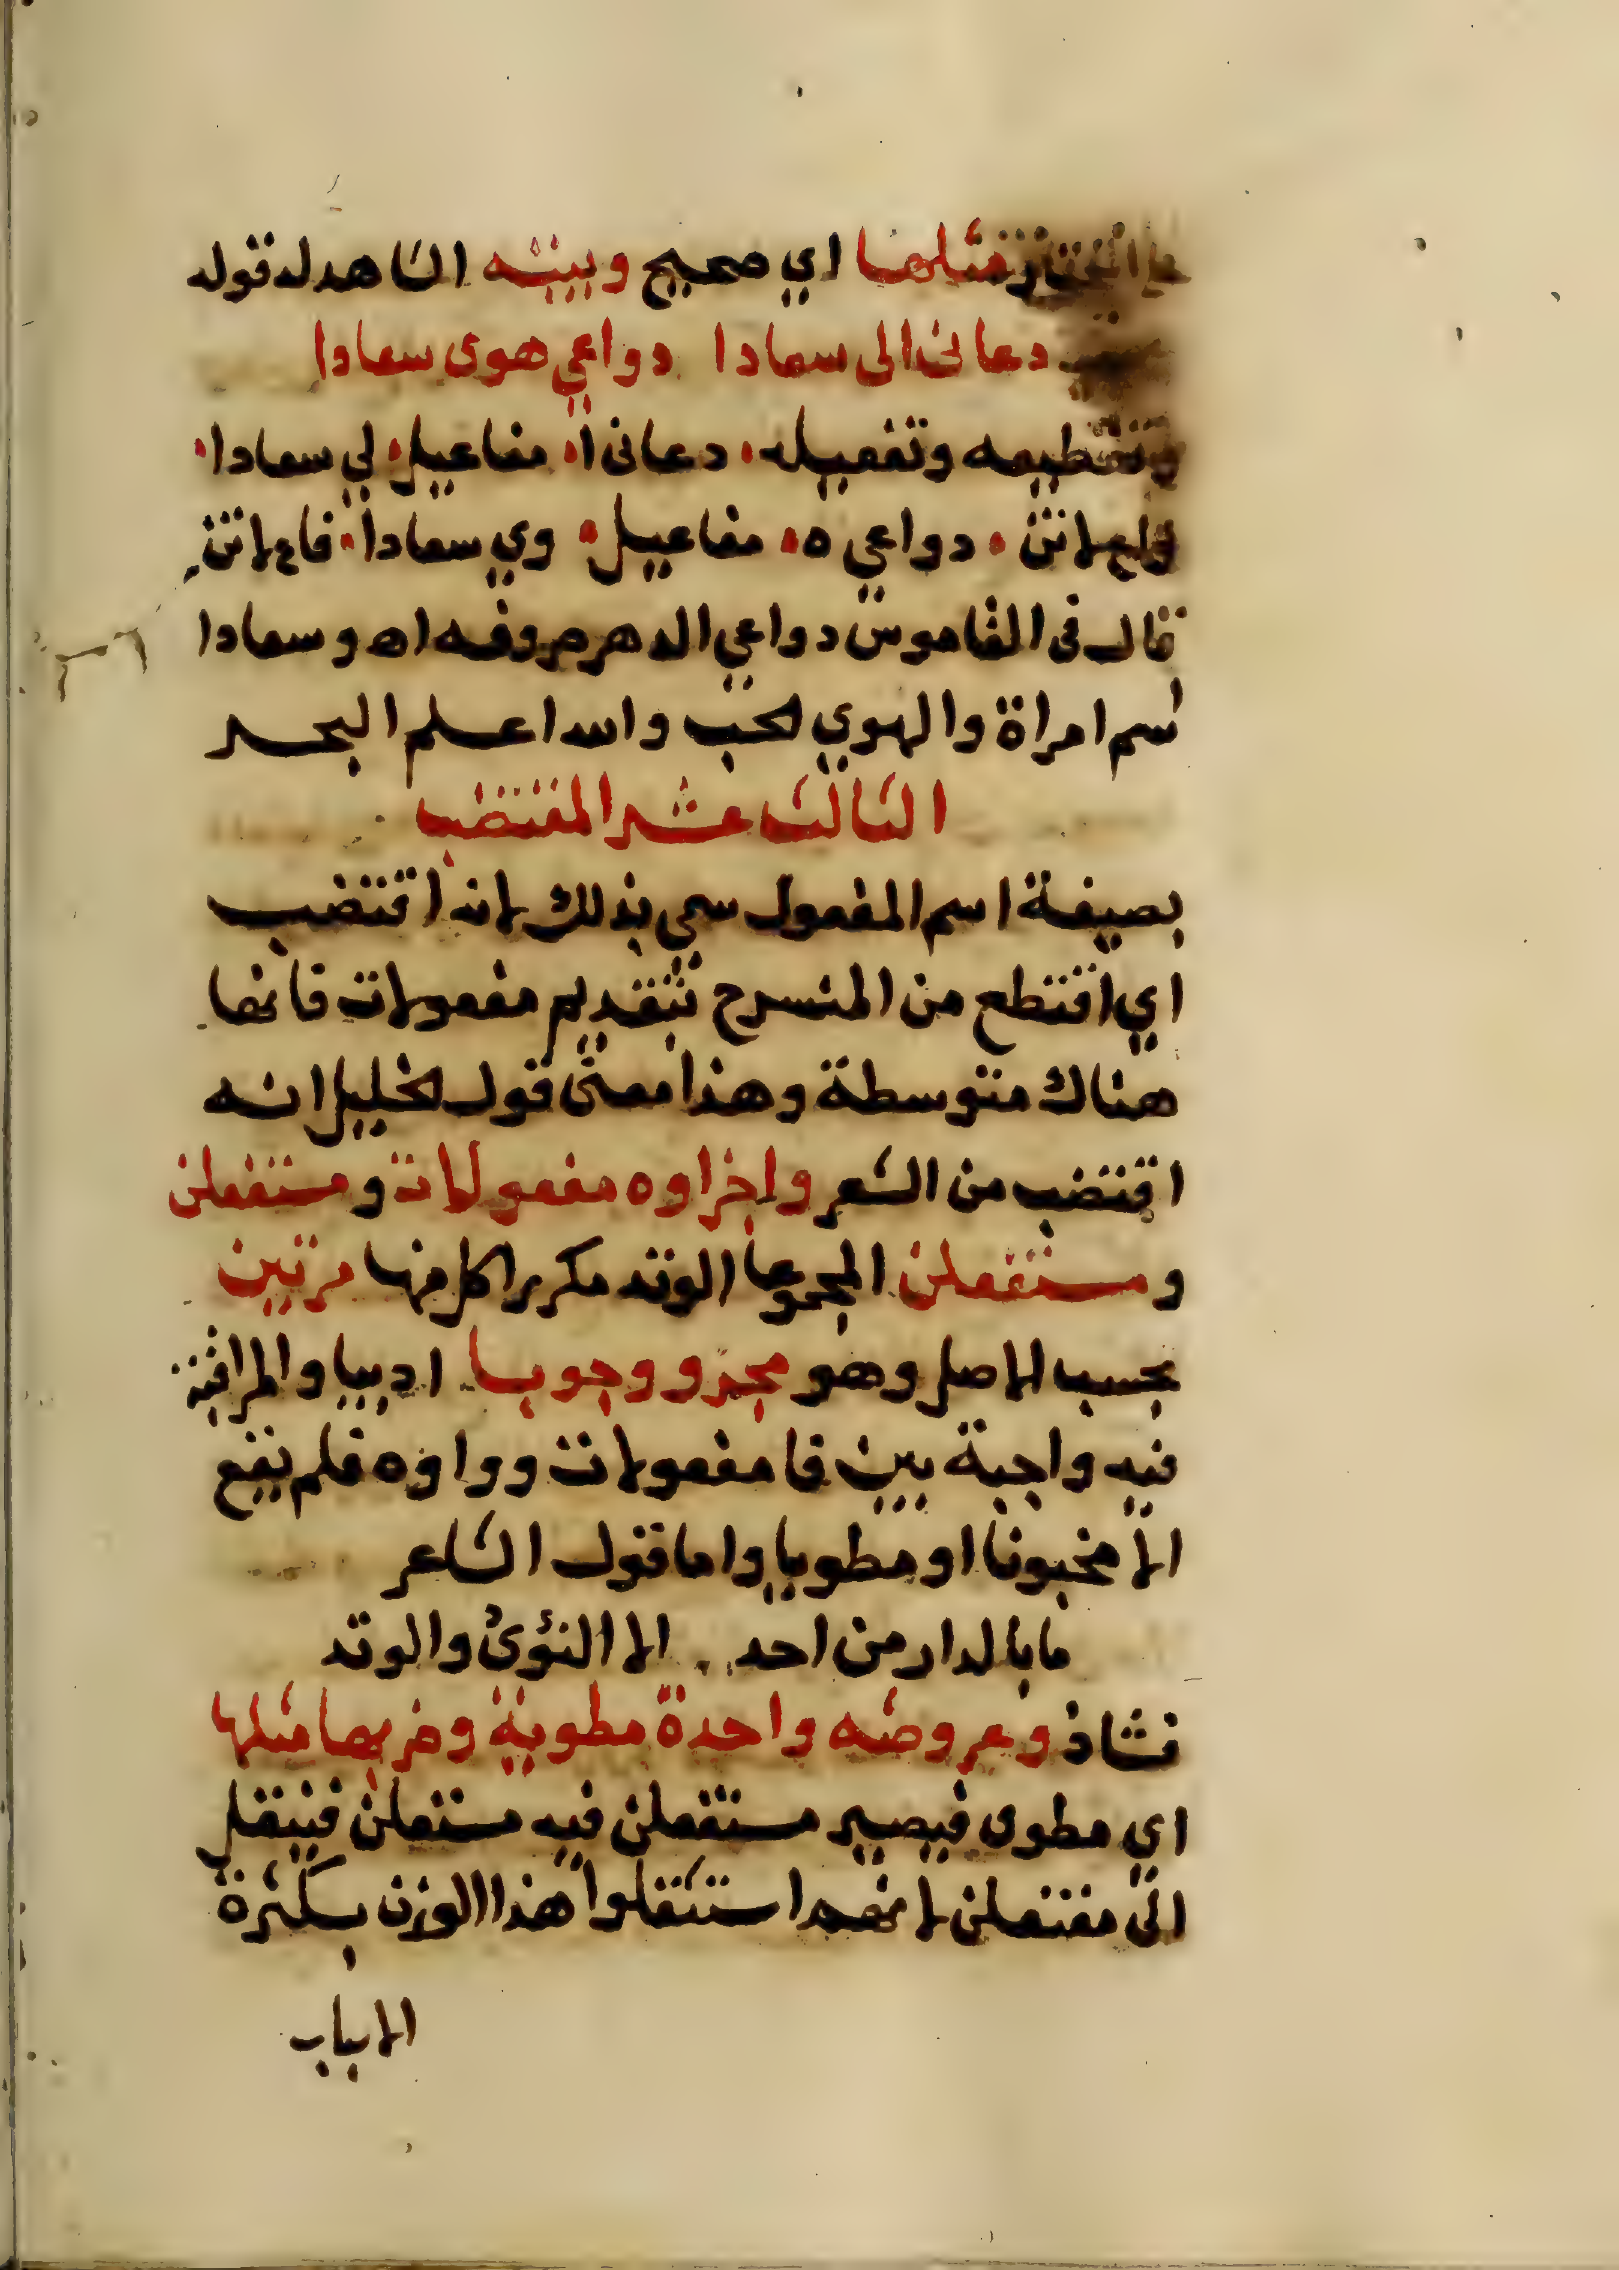 مثلها اي صحيح وبيته الشاهد له قوله
دعاني الى سعادا دواعي هوى سعادا
وتقطيعه وتفعيله دعانى ا مفاعيل لي سعادا
فاعلاتن دواعي ه مفاعيل وي سعادا فاعلاتن
قال فى القاموس دواعي الدهر صروفه اه وسعادا
اسم امراة والهوي لحب والله اعلم البحر
الثالث عشر المقتضب
بصيغة اسم المفعول سمي بذلك لانه اقتضب
اي اقتطع من المنسرح بتقديم مفعولات فانها
هناك متوسطة وهذا معنى قول لخليل انه
اقتضب من الشعر واجزاوه مفعولات ومستفعلن
ومستفعلن المجموعا الوتد مكررا كل منها مرتين
بحسب الاصل وهو مجزو وجوبا اديبا والمراقبة
فيه واجبة بين فا مفعولات وواوه فلم يقع
الا مخبونا او مطويا واما قول الشاعر
ما بالدار من احد الا النؤى والوتد
فشاذ وعروضه واحدة مطوية وضربها مثلها
اي مطوى فيصير مستفعلن فيه مستعلن فينقل
الى مفتعلن لانهم استثقلوا هذا الوزن بكثرة
الاباب